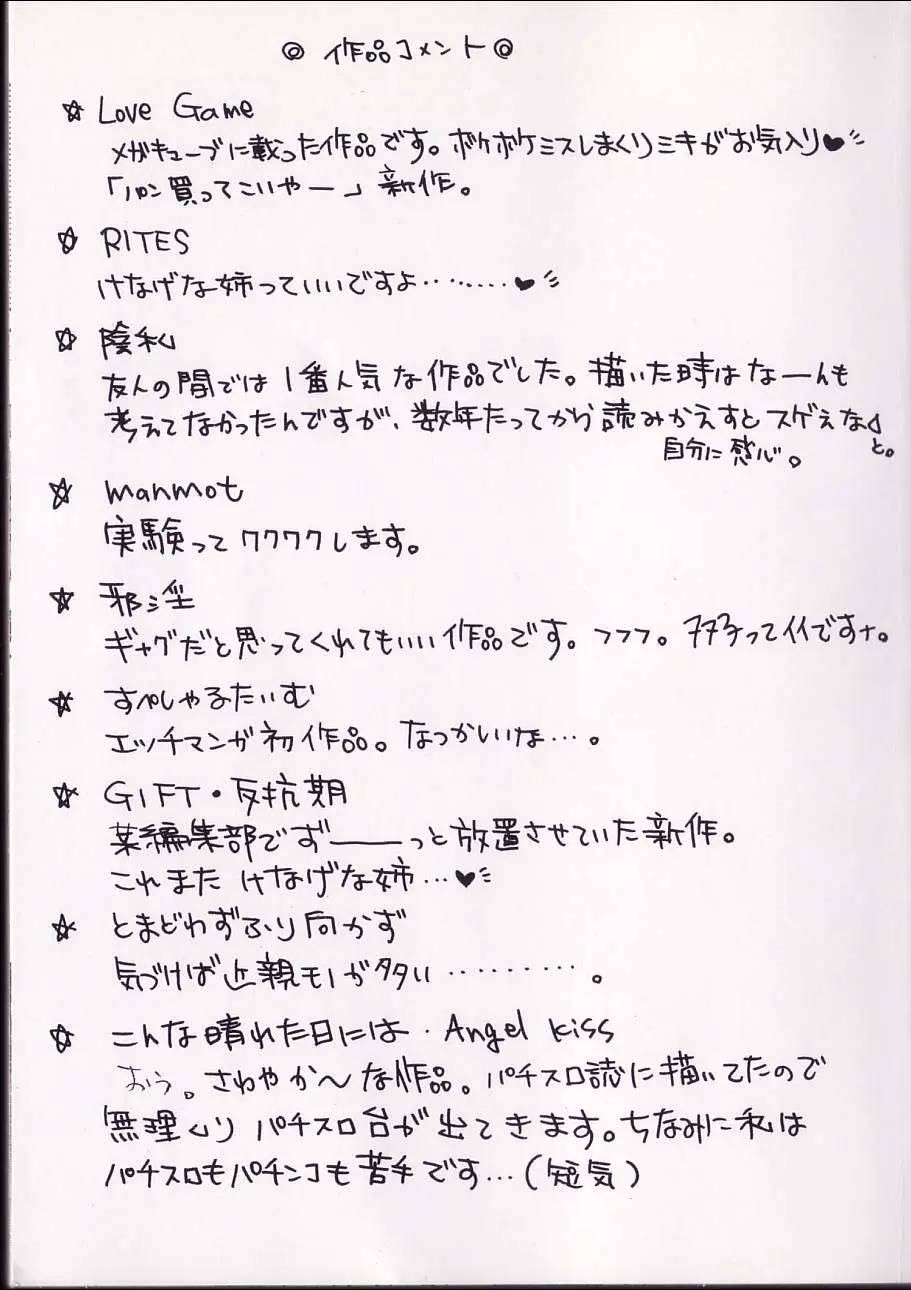 ◎ 作品コメント◎
☆ Love Game
メガキューブに載った作品です。ボケボケミスしまくりミキがお気入り♥
「パン買ってこいやー」新作。
☆ RITES
けなげな姉っていいですよ‥‥‥‥♥
☆ 陰私
友人の間では1番人気な作品でした。描いた時はなーんも
考えてなかったんですが、数年たってから読みかえすとスゲぇな
と。
自分に感心。
☆ manmot
実験ってワクワクします。
☆ 邪淫
ギャグだと思ってくれてもいい作品です。フフフ。フフフってイイですナ。
☆ すぺしゃるたいむ
エッチマンガ初作品。なつかいいな…。
☆ GIFT・反抗期
某編集部でずーーーっと放置させていた新作。
これまた けなげな姉…♥
☆ とまどわずふり向かず
気づけば近親モノが多い ‥‥‥‥‥。
☆ こんな晴れた日には・Angel kiss
おう。さわやか〜な作品。パチスロ誌に描いてたので
無理くり パチスロ台が出てきます。ちなみに私は
パチスロもパチンコも苦手です…(短気)